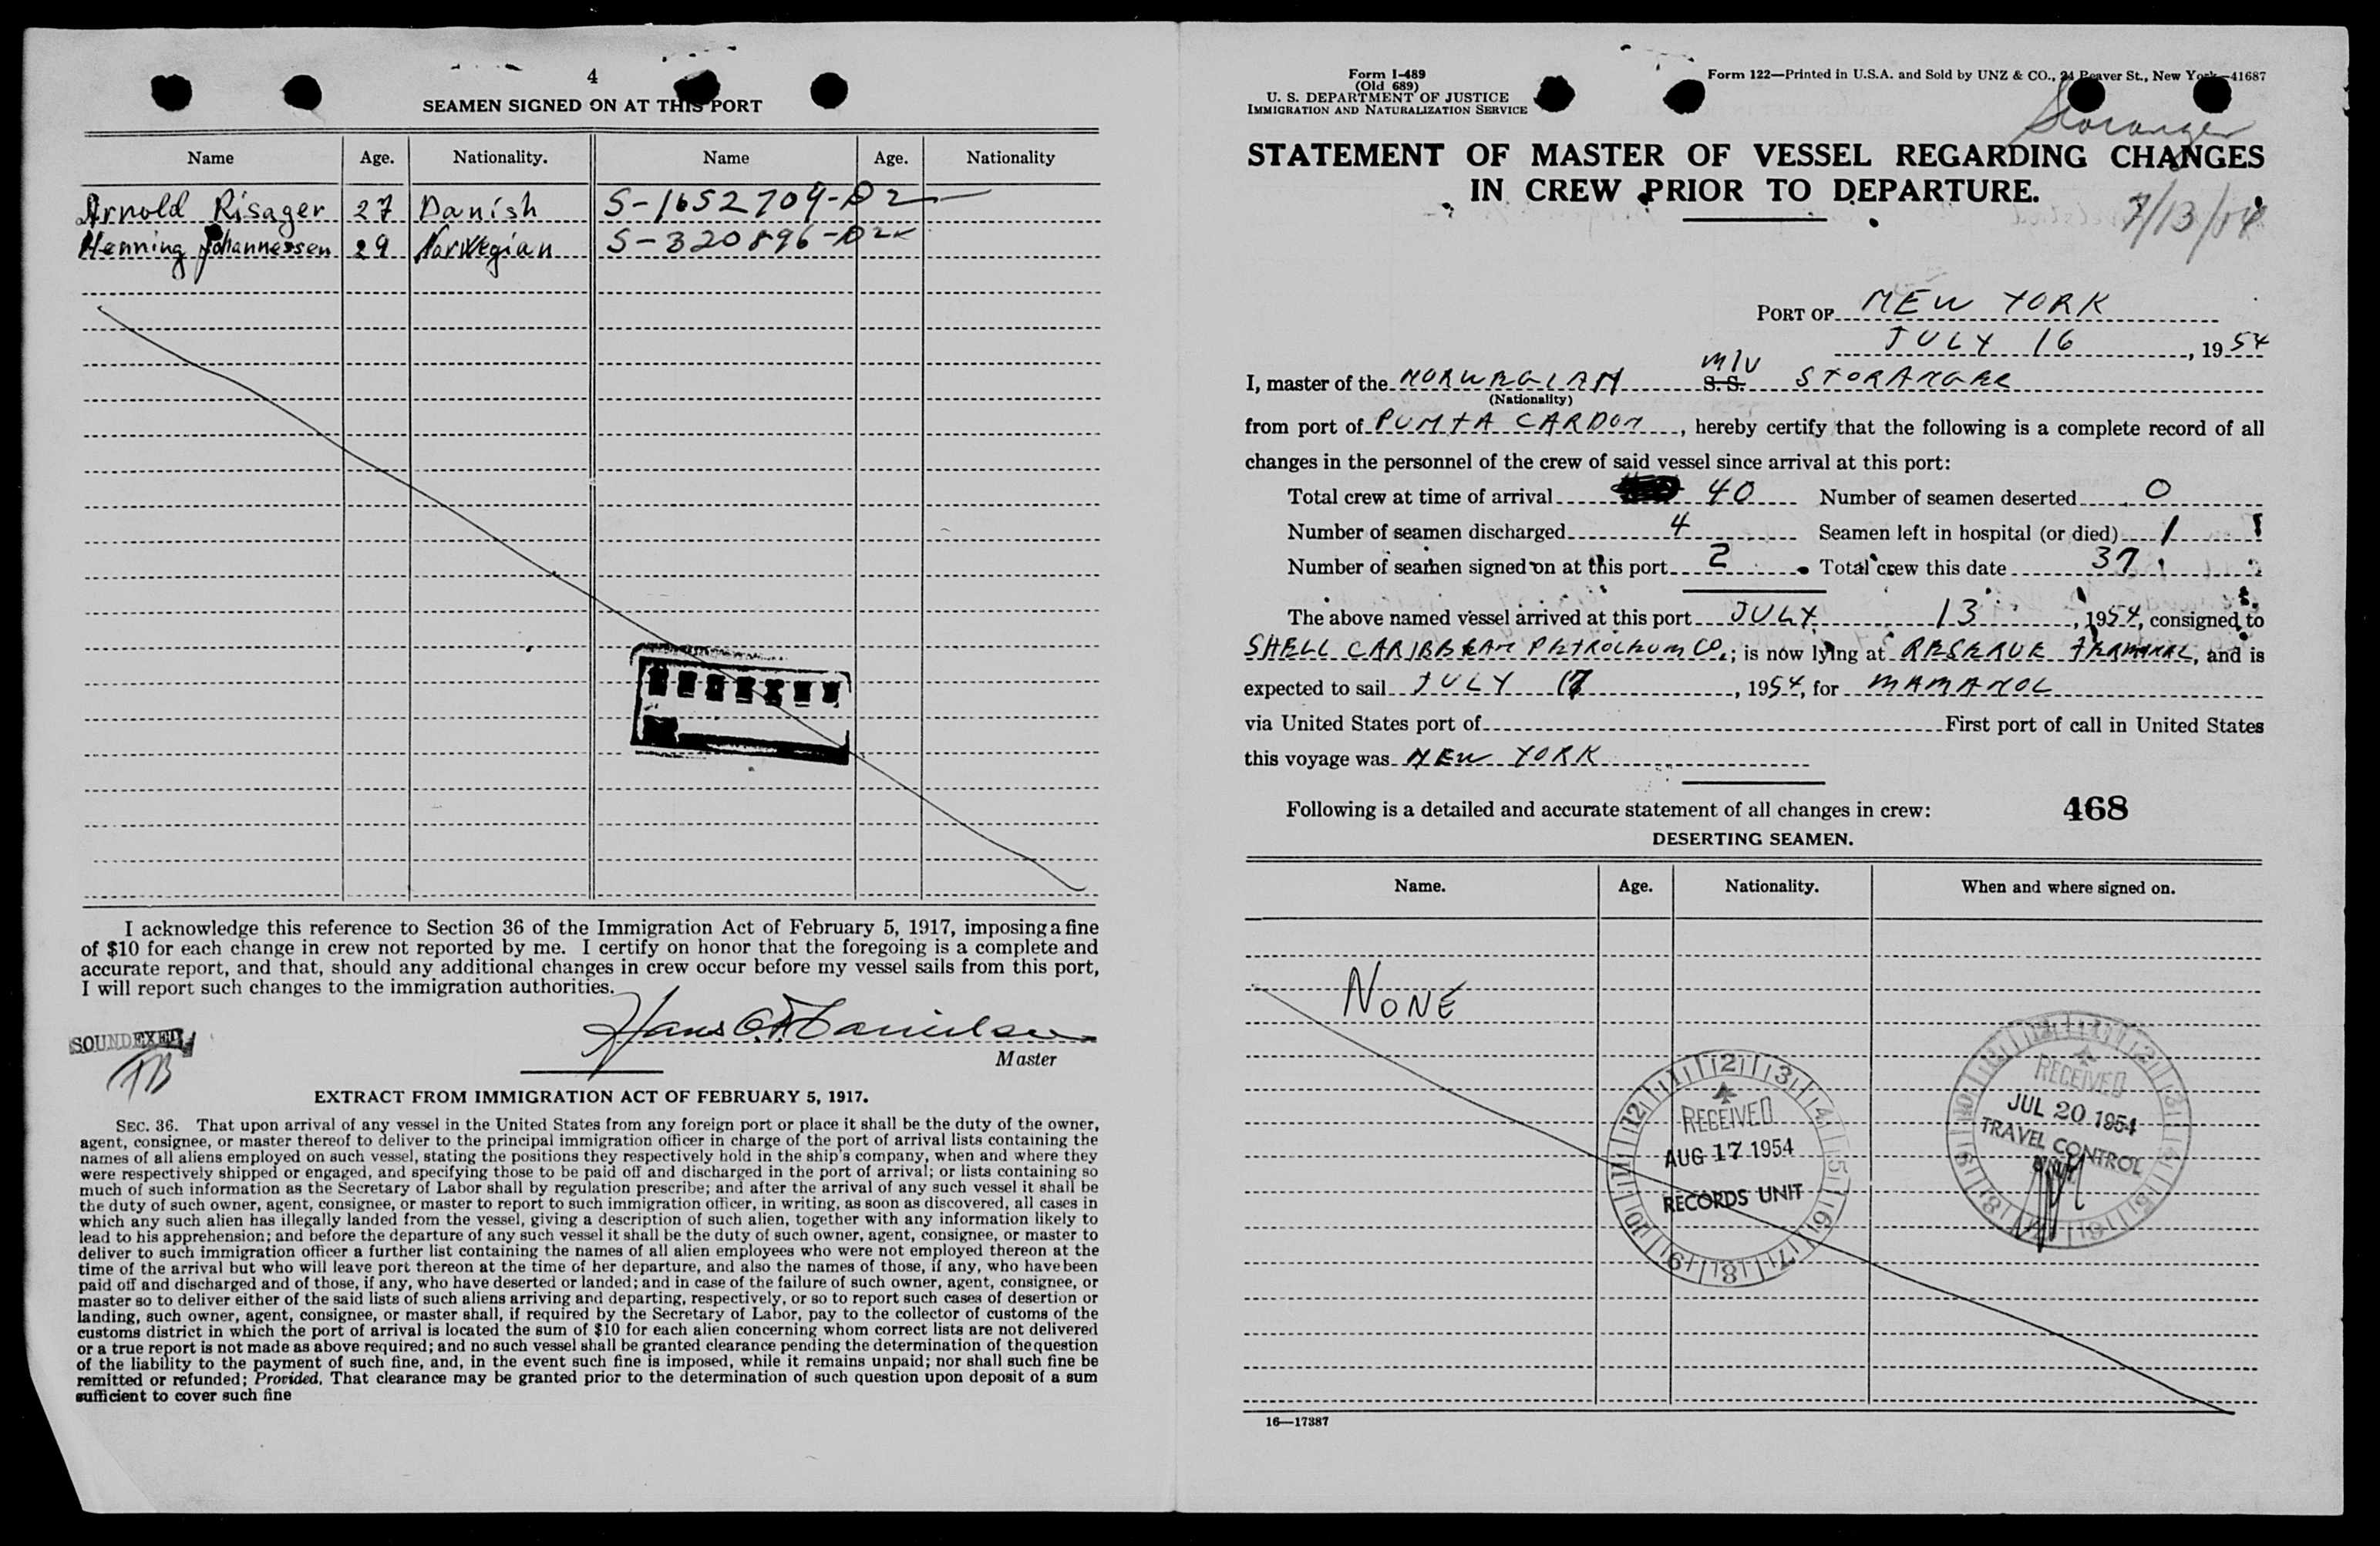 4
SEAMEN SIGNED ON AT THIS PORT
Name Age. Nationality. Name Age. Nationality
Arnold Risager 27 Danish S-1652709-D2
Henning Johannessen 29 Norwegian S-320896-D2
I acknowledge this reference to Section 36 of the Immigration Act of February 5, 1917, imposing a fine
of $10 for each change in crew not reported by me. I certify on honor that the foregoing is a complete and
accurate report, and that, should any additional changes in crew occur before my vessel sails from this port,
I will report such changes to the immigration authorities.
Hans Danielsen
SOUNDEXED
Master
EXTRACT FROM IMMIGRATION ACT OF FEBRUARY 5, 1917.
SEC. 36. That upon arrival of any vessel in the United States from any foreign port or place it shall be the duty of the owner,
agent, consignee, or master thereof to deliver to the principal immigration officer in charge of the port of arrival lists containing the
names of all aliens employed on such vessel, stating the positions they respectively hold in the ship's company, when and where they
were respectively shipped or engaged, and specifying those to be paid off and discharged in the port of arrival; or lists containing so
much of such information as the Secretary of Labor shall by regulation prescribe; and after the arrival of any such vessel it shall be
the duty of such owner, agent, consignee, or master to report to such immigration officer, in writing, as soon as discovered, all cases in
which any such alien has illegally landed from the vessel, giving a description of such alien, together with any information likely to
lead to his apprehension; and before the departure of any such vessel it shall be the duty of such owner, agent, consignee, or master to
deliver to such immigration officer a further list containing the names of all alien employees who were not employed thereon at the
time of the arrival but who will leave port thereon at the time of her departure, and also the names of those, if any, who have been
paid off and discharged and of those, if any, who have deserted or landed; and in case of the failure of such owner, agent, consignee, or
master so to deliver either of the said lists of such aliens arriving and departing, respectively, or so to report such cases of desertion or
landing, such owner, agent, consignee, or master shall, if required by the Secretary of Labor, pay to the collector of customs of the
customs district in which the port of arrival is located the sum of $10 for each alien concerning whom correct lists are not delivered
or a true report is not made as above required; and no such vessel shall be granted clearance pending the determination of the question
of the liability to the payment of such fine, and, in the event such fine is imposed, while it remains unpaid; nor shall such fine be
remitted or refunded; Provided, That clearance may be granted prior to the determination of such question upon deposit of a sum
sufficient to cover such fine
Form I-489
(Old 689)
U. S. DEPARTMENT OF JUSTICE
IMMIGRATION AND NATURALIZATION SERVICE
Form 122—Printed in U.S.A. and Sold by UNZ & CO., 24 Beaver St., New York—41687
Storanger
STATEMENT OF MASTER OF VESSEL REGARDING CHANGES
IN CREW PRIOR TO DEPARTURE.
7/13/54
PORT OF NEW YORK
JULY 16, 1954
I, master of the NORWEGIAN S.S. M/V STORANGER
(Nationality)
from port of PUNTA CARDON, hereby certify that the following is a complete record of all
changes in the personnel of the crew of said vessel since arrival at this port:
Total crew at time of arrival 40 Number of seamen deserted 0
Number of seamen discharged 4 Seamen left in hospital (or died) 1
Number of seamen signed on at this port 2 Total crew this date 37
The above named vessel arrived at this port JULY 13, 1954, consigned to
SHELL CARIBBEAN PETROLEUM CO.; is now lying at RESERVE TERMINAL, and is
expected to sail JULY 17, 1954, for MAMANOL
via United States port of First port of call in United States
this voyage was NEW YORK
Following is a detailed and accurate statement of all changes in crew: 468
DESERTING SEAMEN.
Name. Age. Nationality. When and where signed on.
NONE
RECEIVED
AUG 17 1954
RECORDS UNIT
RECEIVED
JUL 20 1954
TRAVEL CONTROL
16—17387